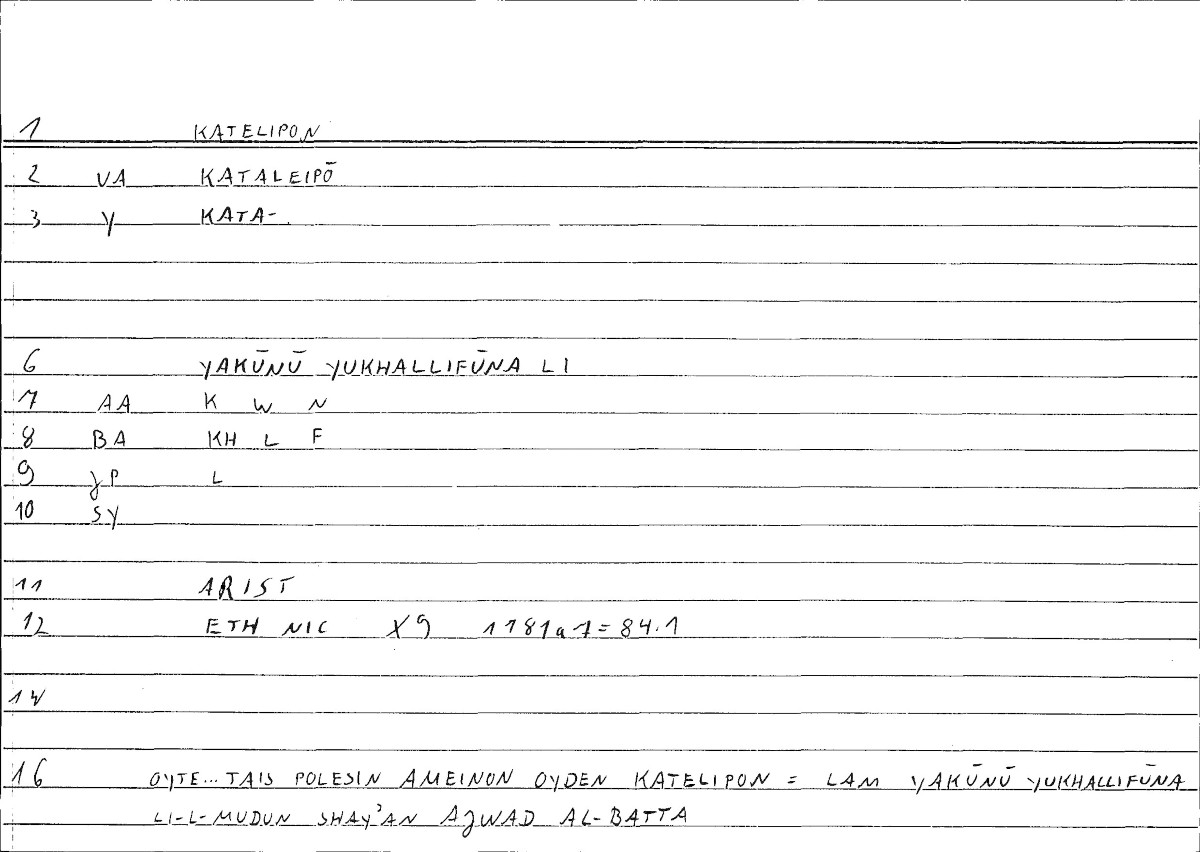 1 KATELIPON
2 VA KATALEIPŌ
3 Y KATA-
6 YAKŪNŪ YUKHALLIFŪNA LI
7 AA K W N
8 BA KH L F
9 JP L
10 SY
11 ARIST
12 ETH NIC X9 1181a7=84.1
14
16 OYTE... TAIS POLESIN AMEINON OYDEN KATELIPON = LAM YAKŪNŪ YUKHALLIFŪNA
LI-L-MUDUN SHAY'AN AJWAD AL-BATTA